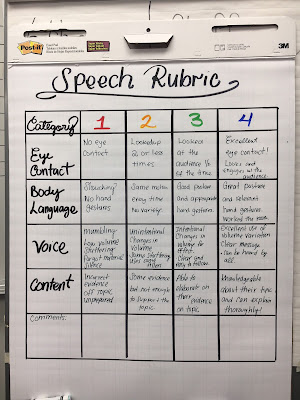 Post-it
3M
Speech Rubric
Category 1 2 3 4
Eye
Contact
No eye
Contact
Looked up
2 or less
times.
Looked
at the
audience 1/2
of the time
Excellent
eye contact!
Looks and
engages w/ the
audience
Body
Language
Slouching
No hand
gestures
Same motion
every time
No variety
Good posture
and appropriate
hand gesture.
Great posture
and relevant
hand gestures
Worked the room
Voice
Mumbling
Low volume
Stuttering
Forgot material
Unintentional
Changes in
Volume
Some Stuttering
Intentional
Changes in
volume
Clear and
easy to follow
Excellent use of
Volume Variation
Clear message
Can be heard by
all
Content
Incorrect
evidence
off topic
unprepared
Some evidence
but not enough
to support the
topic
Able to
elaborate on
their evidence
on topic
Knowledgeable
about their topic
and can explain
thoroughly!
Comments: